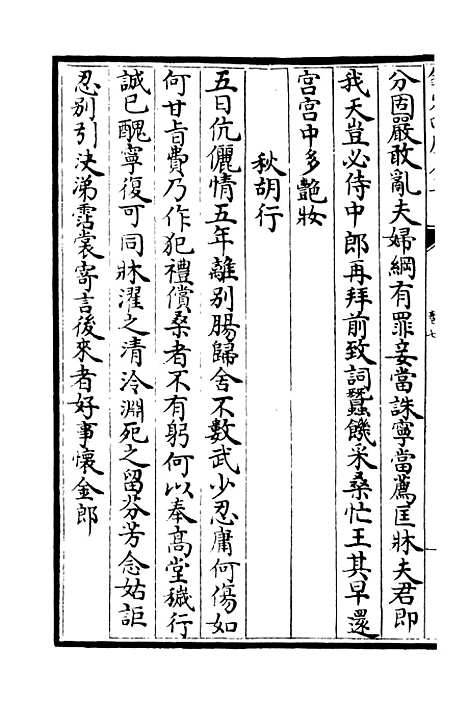 分固嚴敢亂夫婦綱有罪妾當誅寧當薦匡牀夫君即
我天豈必侍中郎再拜前致詞蠶饑采桑忙王其早還
宫宫中多艷妝
秋胡行
五日伉儷情五年離别腸歸舍不數武少忍庸何傷如
何甘旨費乃作犯禮償桑者不有躬何以奉高堂穢行
誠已醜寧復可同牀濯之清泠淵死之留芬芳念姑詎
忍别引决涕霑裳寄言後來者好事懷金郎